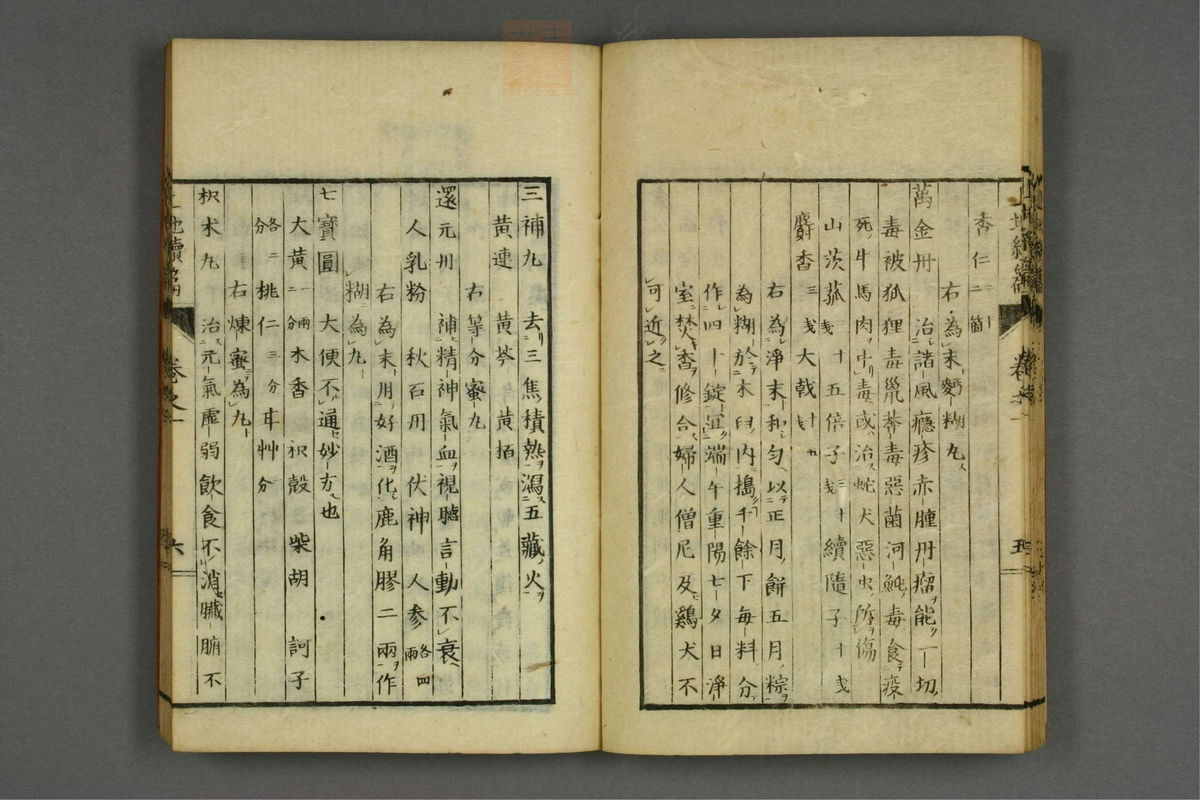 杏仁二箇
右為末麪糊丸
萬金丹 治諸風癮疹赤腫丹瘤能一切
毒被狐狸毒巤莽毒惡菌河魨毒食疫
死牛馬肉中毒或治蛇犬惡虫所傷
山茨菰戔十五倍子戔三十續隨子十戔
麝香三戔大戟戔十五
右為淨末和匀以正月餅五月粽
為糊於木臼內搗千餘下每料分
作四十錠宜端午重陽七夕日淨
室焚香修合婦人僧尼及鷄犬不
可近之
卷之 五
三補丸 去三焦積熱瀉五藏火
黃連 黃芩 黃栢
右等分蜜丸
還元丹 補精神氣血視聽言動不衰
人乳粉 秋石丹 伏神 人參各四兩
右為末用好酒化鹿角膠二兩作
糊為丸
七寶圓 大便不通妙方也
大黃一兩分木香 枳殼 柴胡 訶子
各二分 桃仁三分 耳艸分
右煉蜜為丸
枳朮丸 治元氣虛弱飲食不消臟腑不
地續編 卷之 六